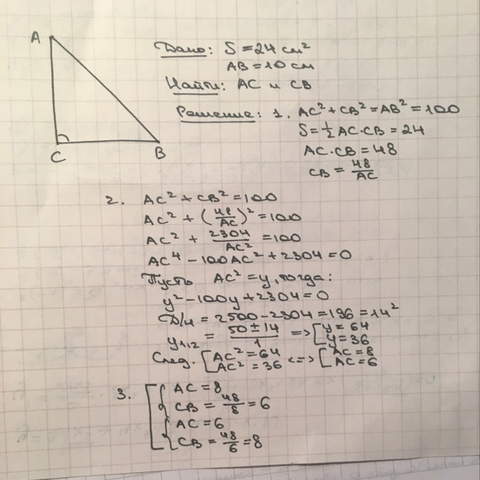 A
C
B
Дано: S = 24 см²
AB = 10 см
Найти: AC и CB
Решение: 1. AC² + CB² = AB² = 100
S = 1/2 AC·CB = 24
AC·CB = 48
CB = 48/AC
2. AC² + CB² = 100
AC² + (48/AC)² = 100
AC² + 2304/AC² = 100
AC⁴ - 100AC² + 2304 = 0
Пусть AC² = y, тогда:
y² - 100y + 2304 = 0
D/4 = 2500 - 2304 = 196 = 14²
y₁,₂ = (50 ± 14)/1 => [y = 64
[y = 36
След. [AC² = 64 <=> [AC = 8
[AC² = 36 [AC = 6
3. [{AC = 8
{CB = 48/8 = 6
{AC = 6
{CB = 48/6 = 8